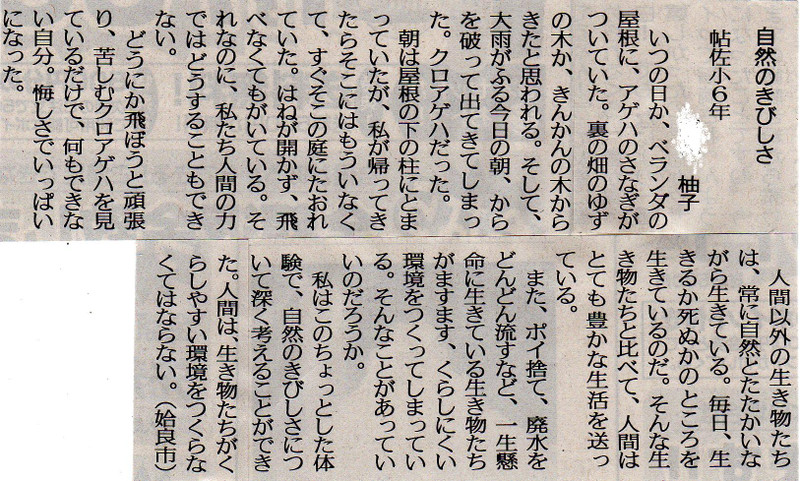 自然のきびしさ
帖佐小6年
柚子
いつの日か、ベランダの
屋根に、アゲハのさなぎが
ついていた。裏の畑のゆず
の木か、きんかんの木から
きたと思われる。そして、
大雨がふる今日の朝、から
を破って出てきてしまっ
た。クロアゲハだった。
朝は屋根の下の柱にとま
っていたが、私が帰ってき
たらそこにはもういなく
て、すぐそこの庭にたおれ
ていた。はねが開かず、飛
べなくてもがいている。そ
れなのに、私たち人間の力
ではどうすることもでき
ない。
どうにか飛ぼうと頑張
り、苦しむクロアゲハを見
ているだけで、何もできな
い自分。悔しさでいっぱい
になった。
人間以外の生き物たち
は、常に自然とたたかいな
がら生きている。毎日、生
きるか死ぬかのところを
生きているのだ。そんな生
き物たちと比べて、人間は
とても豊かな生活を送っ
ている。
また、ポイ捨て、廃水を
どんどん流すなど、一生懸
命に生きている生き物たち
がますます、くらしにくい
環境をつくってしまってい
る。そんなことがあってい
いのだろうか。
私はこのちょっとした体
験で、自然のきびしさにつ
いて深く考えることができ
た。人間は、生き物たちがく
らしやすい環境をつくらな
くてはならない。（姶良市）